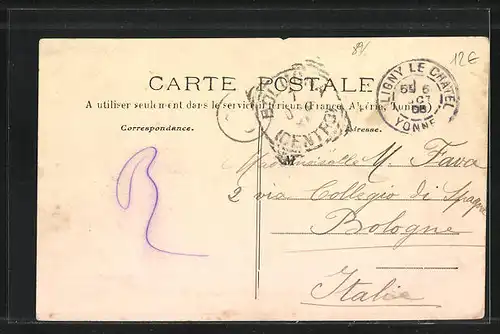 12€
CARTE POSTALE
A utiliser seulement dans le service intérieur (France, Algérie, Tunisie)
Correspondance.
Adresse.
LIGNY LE CHATEL
YONNE
(CENTRO)
Mademoiselle M. Fava
2 via Collegio di Spagna
Bologne
Italie